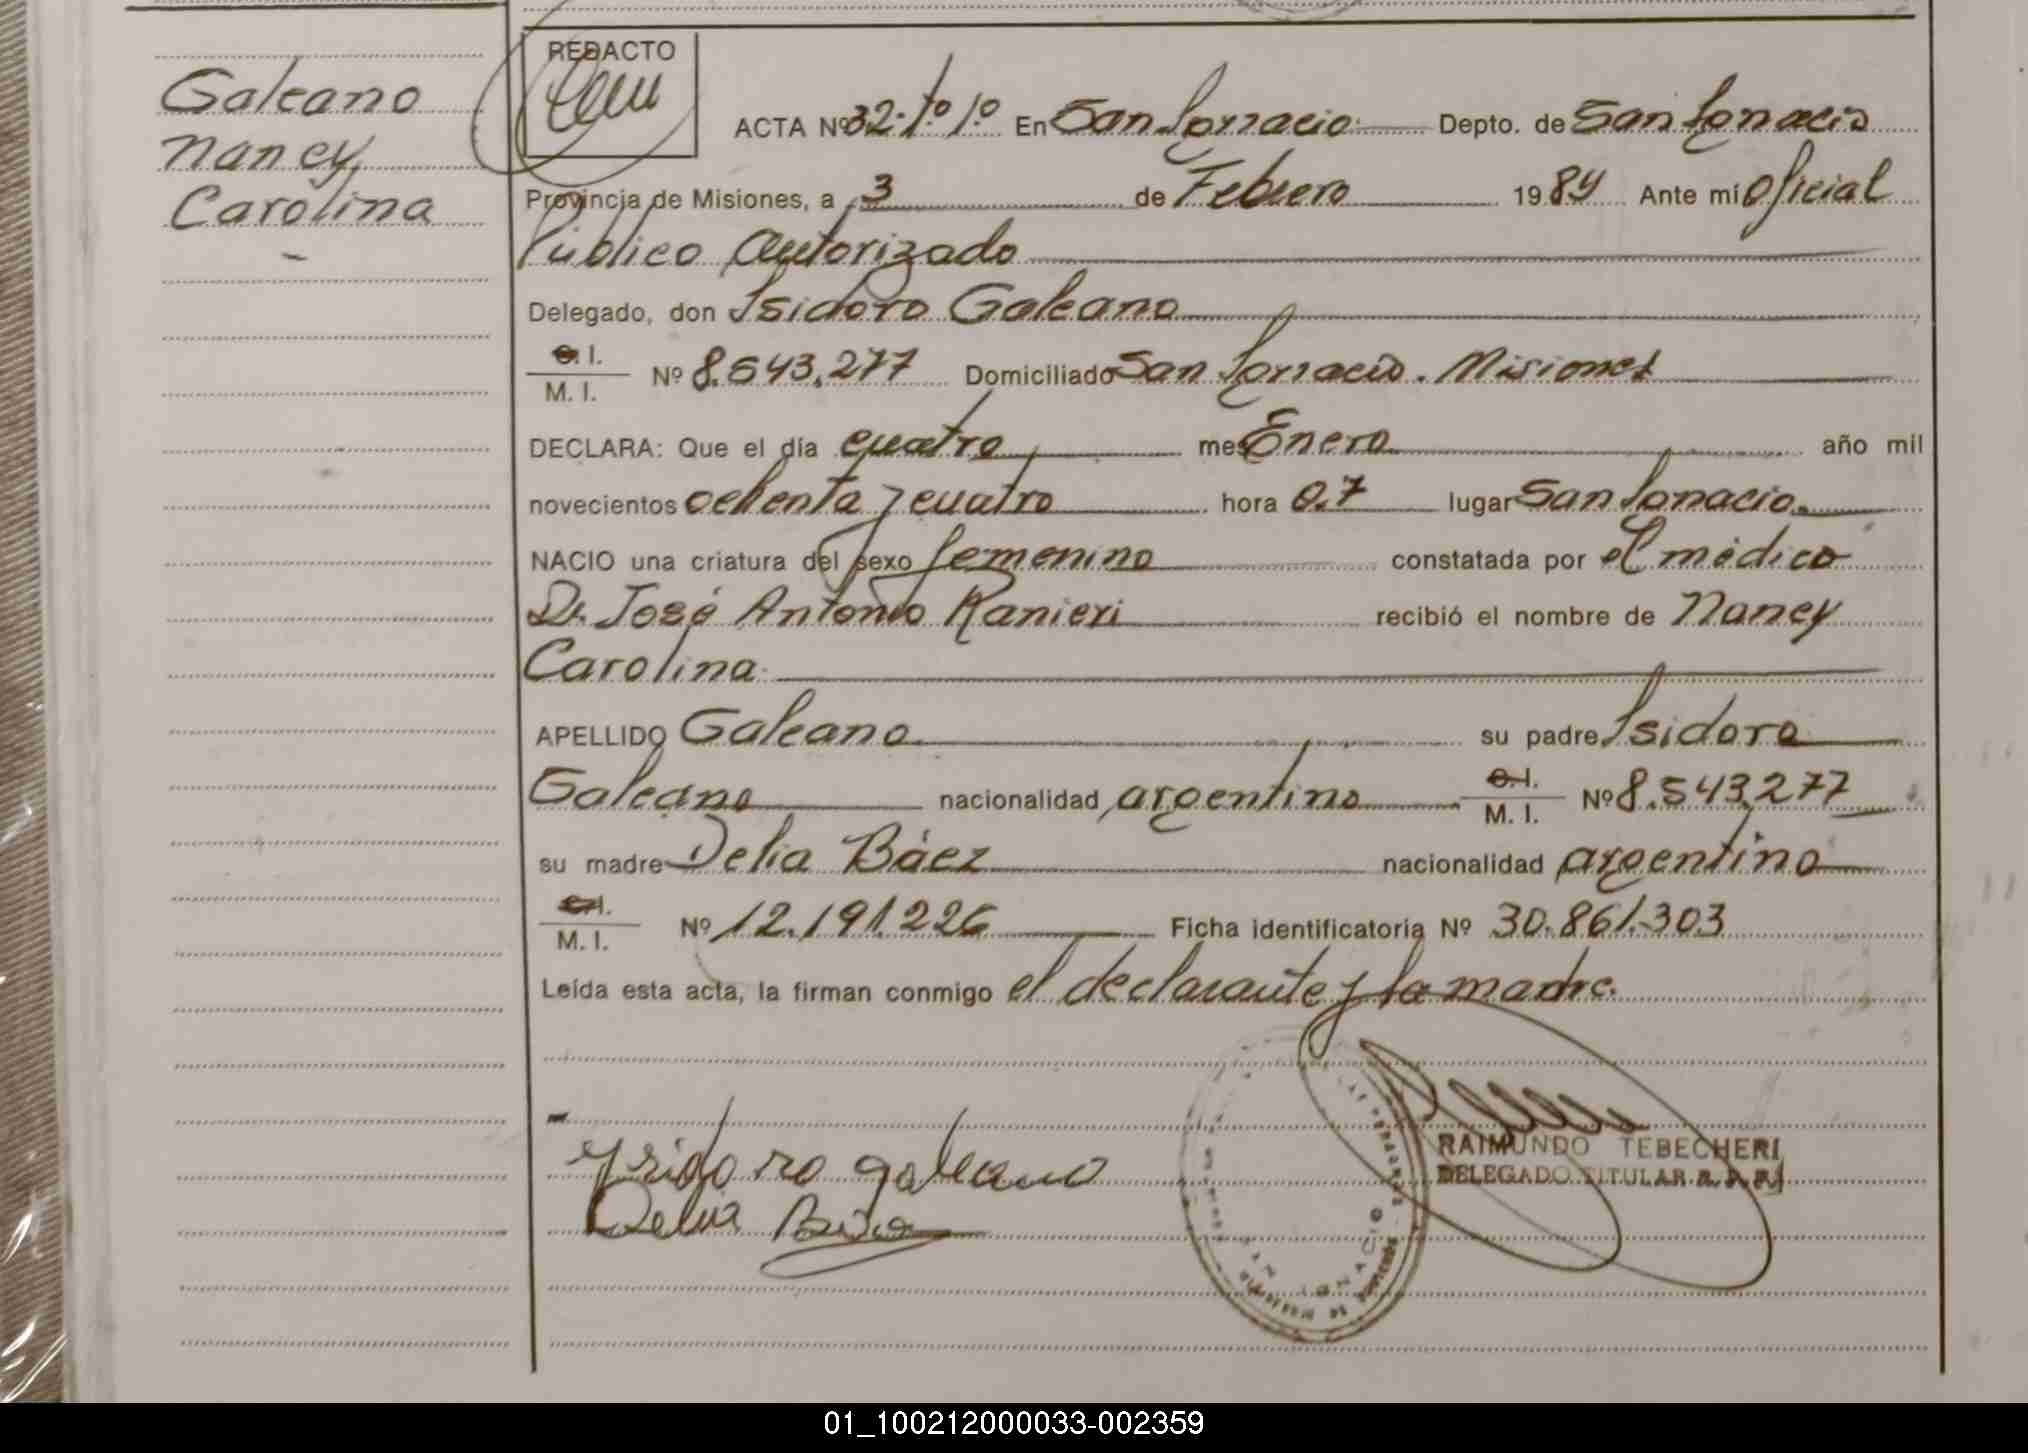 Galeano
Nancy
Carolina
REDACTO
ACTA Nº 32. Tº 1º En San Ignacio Depto. de San Ignacio
Provincia de Misiones, a 3 de Febrero 1984 Ante mí Oficial
Público Autorizado
Delegado, don Isidoro Galeano
C. I.
M. I. Nº 8.543.277 Domiciliado San Ignacio. Misiones
DECLARA: Que el día cuatro mes Enero año mil
novecientos ochenta y cuatro hora 0.7 lugar San Ignacio.
NACIO una criatura del sexo femenino constatada por el médico
Dr. José Antonio Ranieri recibió el nombre de Nancy
Carolina
APELLIDO Galeano su padre Isidoro
Galeano nacionalidad argentino C.I.
M. I. Nº 8.543.277
su madre Delia Báez nacionalidad argentino
C.I.
M. I. Nº 12.191.226 Ficha identificatoria Nº 30.861.303
Leída esta acta, la firman conmigo el declarante y la madre.
Isidoro galeano
Delia
RAIMUNDO TEBECHERI
DELEGADO TITULAR R. P. P.
SAN IGNACIO
01_100212000033-002359